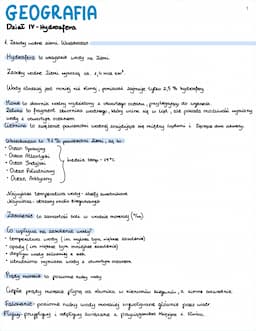 1
GEOGRAFIA
Dział IV - Hydrosfera
1. Zasoby wodne ziemi. Wszechocean
Hydrosfera to wszystkie wody na Ziemi
Zasoby wodne Ziemi wynoszą ok. 1,4 mld km³
Wody słodkiej jest mniej niż słonej, ponieważ zajmuje tylko 2,5 % hydrosfery
Morze to zbiornik wodny wydzielony z otwartego oceanu, przylegający do wybrzeża
Zatoka to fragment zbiornika wodnego, który wcina się w ląd, ale posiada możliwość wymiany
wody z otwartym oceanem
Cieśnina to zwężenie powierzchni wodnej znajdujące się między lądami i łącząca dwa akweny.
Wszechocean to 71% powierzchni Ziemi, są to:
• Ocean Spokojny
• Ocean Atlantycki
• Ocean Indyjski
• Ocean Południowy
• Ocean Arktyczny
średnia temp -
Najwyższe temperatury wody - strefy zwrotnikowe
Najniższe - obszary wokół biegunowego
Zasolenie to zawartość soli w wodzie morskiej (‰)
Co wpływa na zasolenie wody?
• temperatura wody (im wyższa tym większe zasolenie)
• opady (im większe tym mniejsze zasolenie)
• dopływ wody słodkiej z rzek
• utrudniona wymiana wody z otwartym oceanem
Prądy morskie to poziome ruchy wody
Ciepłe prądy morskie płyną od równika w kierunku biegunów, a zimne odwrotnie
Falowanie: pionowe ruchy wody morskiej wywoływane głównie przez wiatr
Pływy: przypływy i odpływy związane z przyciąganiem Księżyca i Słońca